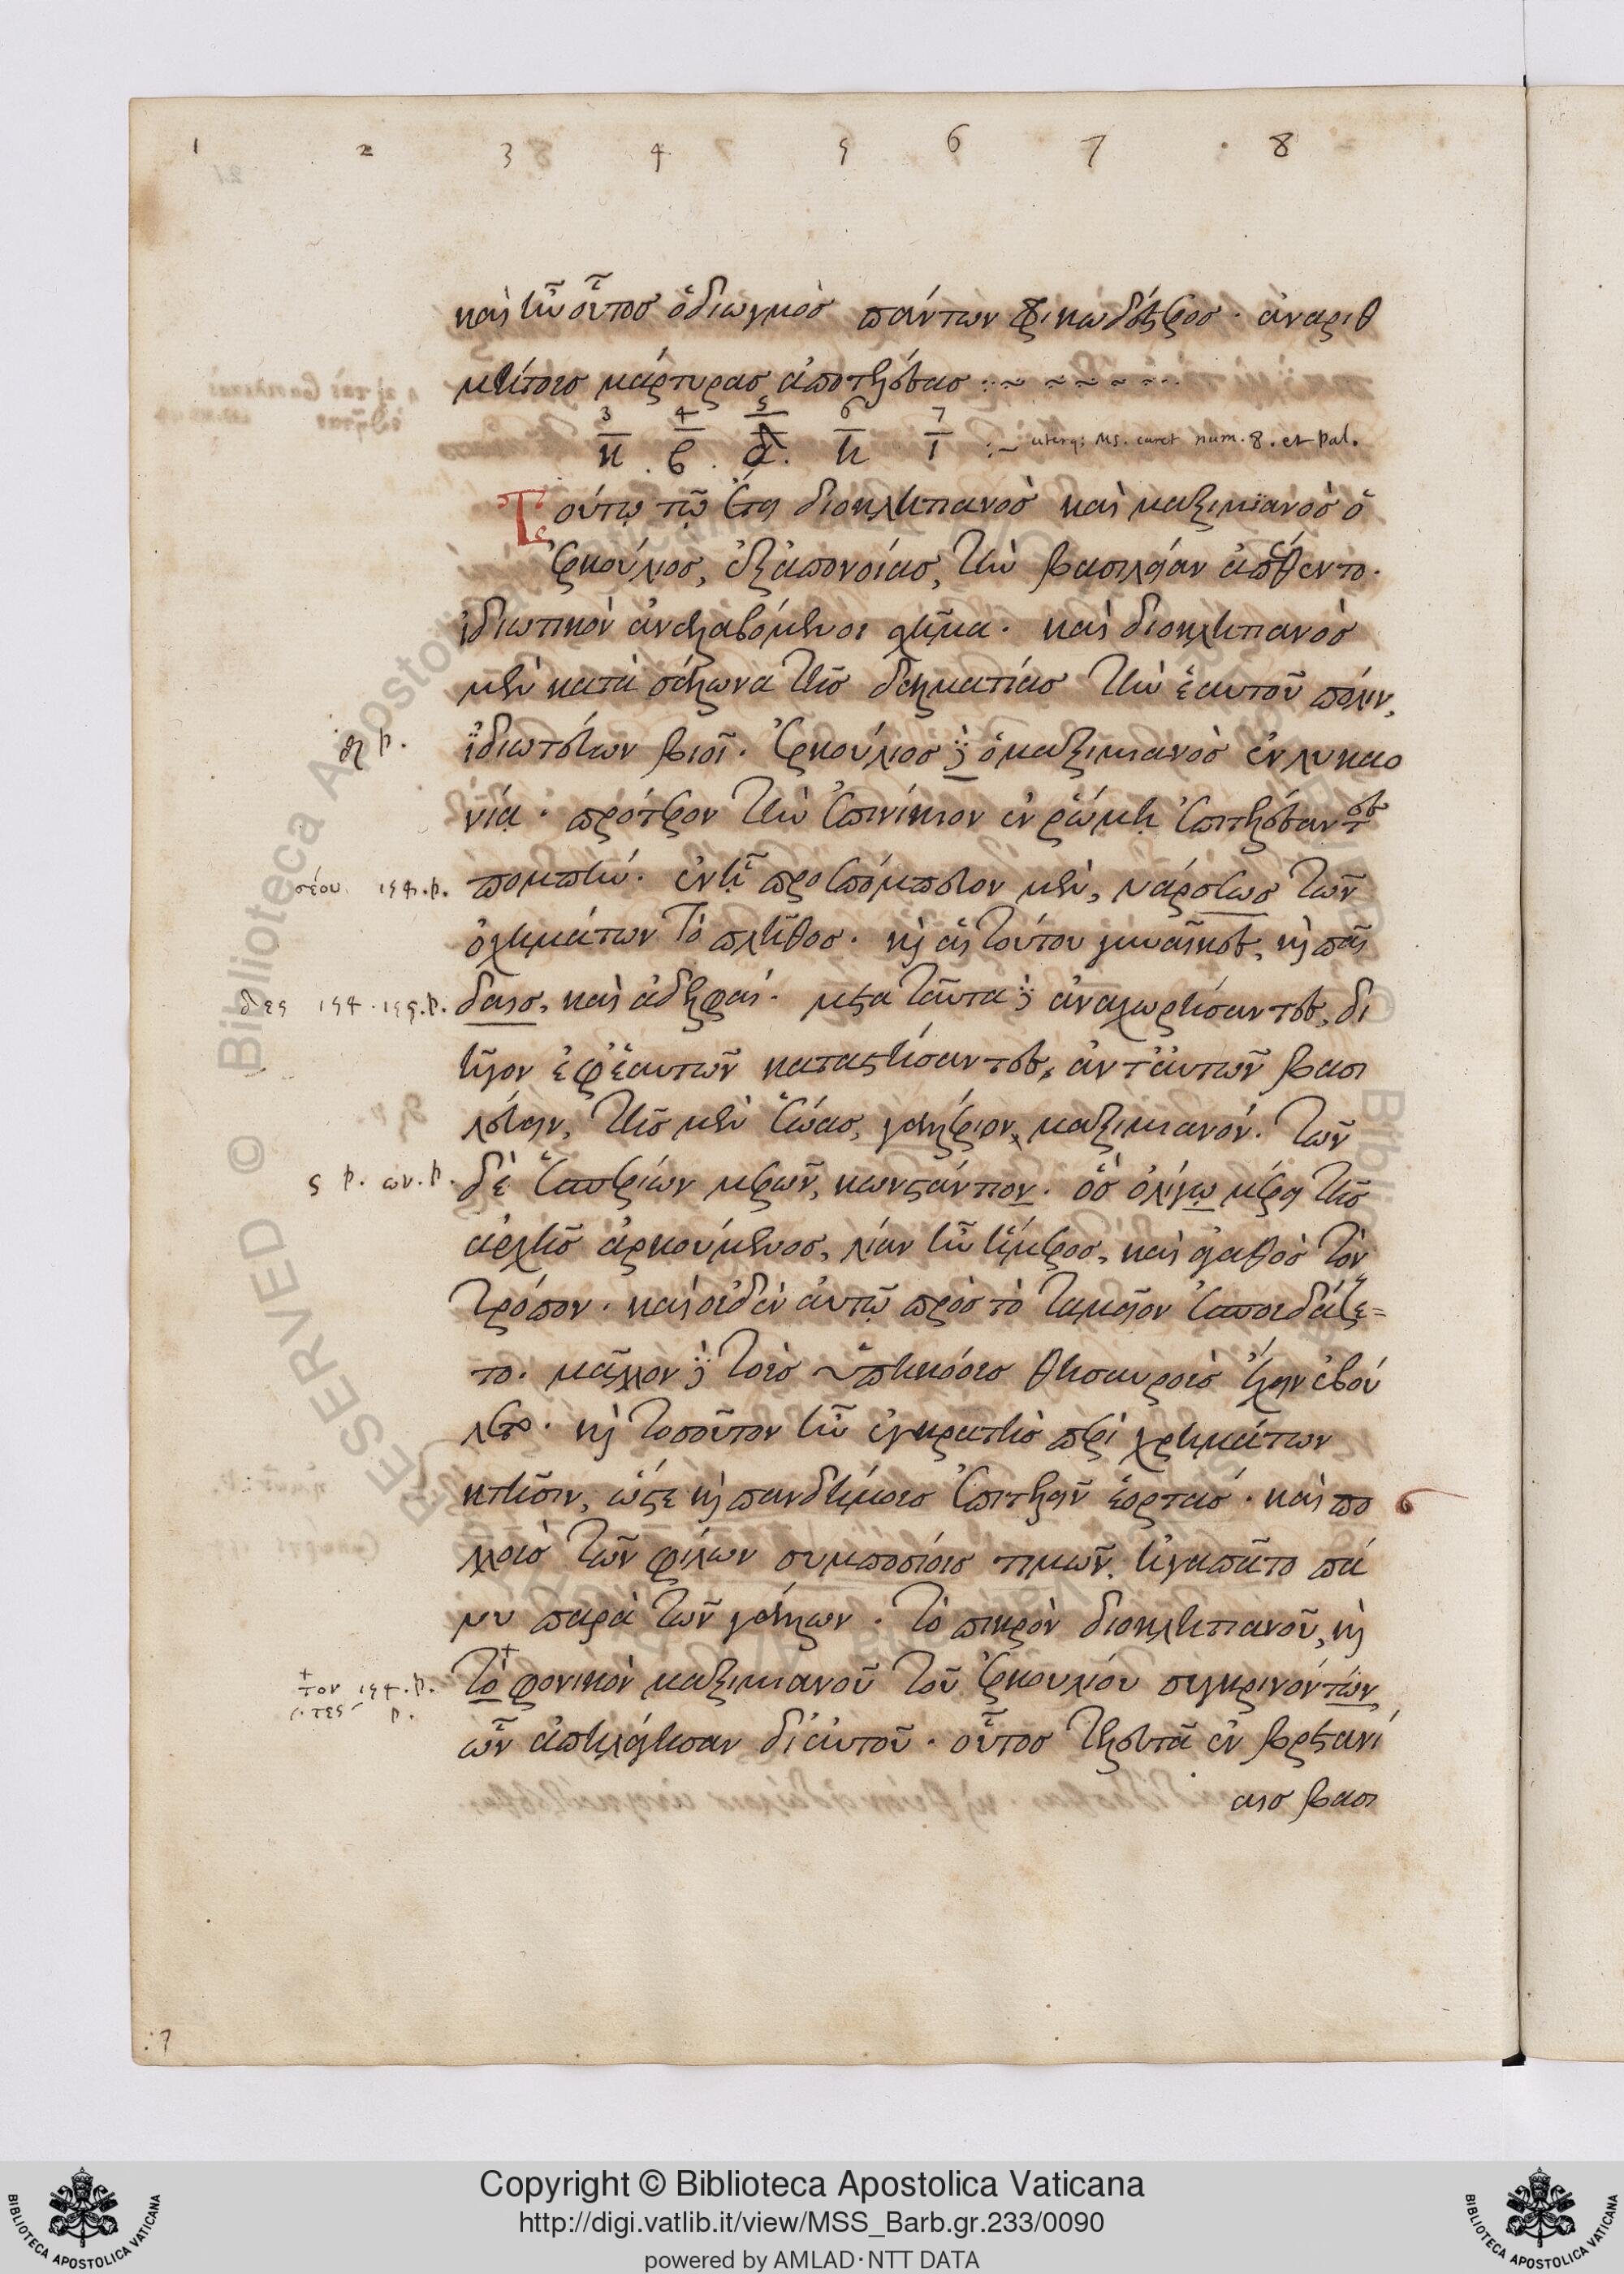 1 2 3 4 5 6 7 8
καὶ ἦν οὗτος ὁ διωγμὸς πάντων φρικωδέστερος · ἀναριθ
μήτους μάρτυρας ἀποτελέσας :~ ~ ~ ~ ~ ~
3 4 5 6 7
κ . β . δ . η ι :~ uterq; Ms. caret num. 8. et Pal.
Τούτῳ τῷ ἔτει διοκλητιανὸς καὶ μαξιμιανὸς ὁ
ἑρκούλιος, ἐξ ἀπονοίας, τὴν βασιλείαν ἀπέθεντο.
ἰδιωτικὸν ἀναλαβόμενοι σχῆμα. καὶ διοκλητιανὸς
μὲν κατὰ σάλωνα τῆς δαλματίας τὴν ἑαυτοῦ πόλιν,
ἰδιωτεύων βιοῖ. ἑρκούλιος δὲ ὁ μαξιμιανὸς ἐν λυκαο
νίᾳ · πρότερον τὴν ἐπινίκιον ἐν ῥώμῃ ἐπιτελέσαντες
πομπήν. ἐν ᾗ προεπόμπευον μὲν, ναρσέως τῶν
ὀχημάτων τὸ πλῆθος. καὶ αἱ τούτου γυναῖκες, καὶ παῖ
δαις, καὶ ἀδελφαί. μετὰ ταῦτα δὲ ἀναχωρήσαντες, δι
ῆγον ἐφ' ἑαυτῶν καταστήσαντες, ἀντ' αὐτῶν βασι
λεύειν, τῆς μὲν ἑώας, γαλέριον μαξιμιανόν. τῶν
δὲ ἑσπερίων μερῶν, κωνστάντιον. ὃς ὀλίγῳ μέρει τῆς
ἀρχῆς ἀρκούμενος, λίαν ἦν ἥμερος, καὶ ἀγαθὸς τὸν
τρόπον. καὶ οὐδὲν αὐτῷ πρὸς τὸ ταμεῖον ἐσπουδάζε=
το. μᾶλλον δὲ τοὺς ὑπηκόους θησαυροὺς ἔχειν ἐβού
λετο. καὶ τοσοῦτον ἦν ἐγκρατὴς περὶ χρημάτων
κτῆσιν, ὥστε καὶ πανδήμους ἐπιτελεῖν ἑορτάς. καὶ πο
λλοὺς τῶν φίλων συμποσίοις τιμῶν. ἠγαπᾶτο πά
νυ παρὰ τῶν γάλλων. τὸ πικρὸν διοκλητιανοῦ, καὶ
τὸ φονικὸν μαξιμιανοῦ τοῦ ἑρκουλίου συγκρινόντων
ὧν ἀπηλάγησαν δι' αὐτοῦ. οὗτος τελευτᾷ ἐν βρετανί
αις βασι
ει p.
σέου. p.
δες p.
ς p. ων. p.
+ τον p.
τες p.
:7
Copyright © Biblioteca Apostolica Vaticana
http://digi.vatlib.it/view/MSS_Barb.gr.233/0090
powered by AMLAD·NTT DATA
BIBLIOTECA APOSTOLICA VATICANA
BIBLIOTECA APOSTOLICA VATICANA